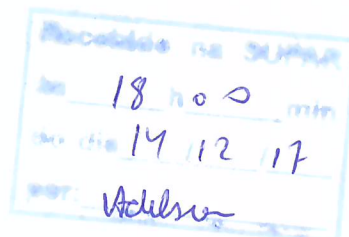 Recebido na SUPAR
às 18 h 00 min
do dia 14 / 12 / 17
por: Adelson